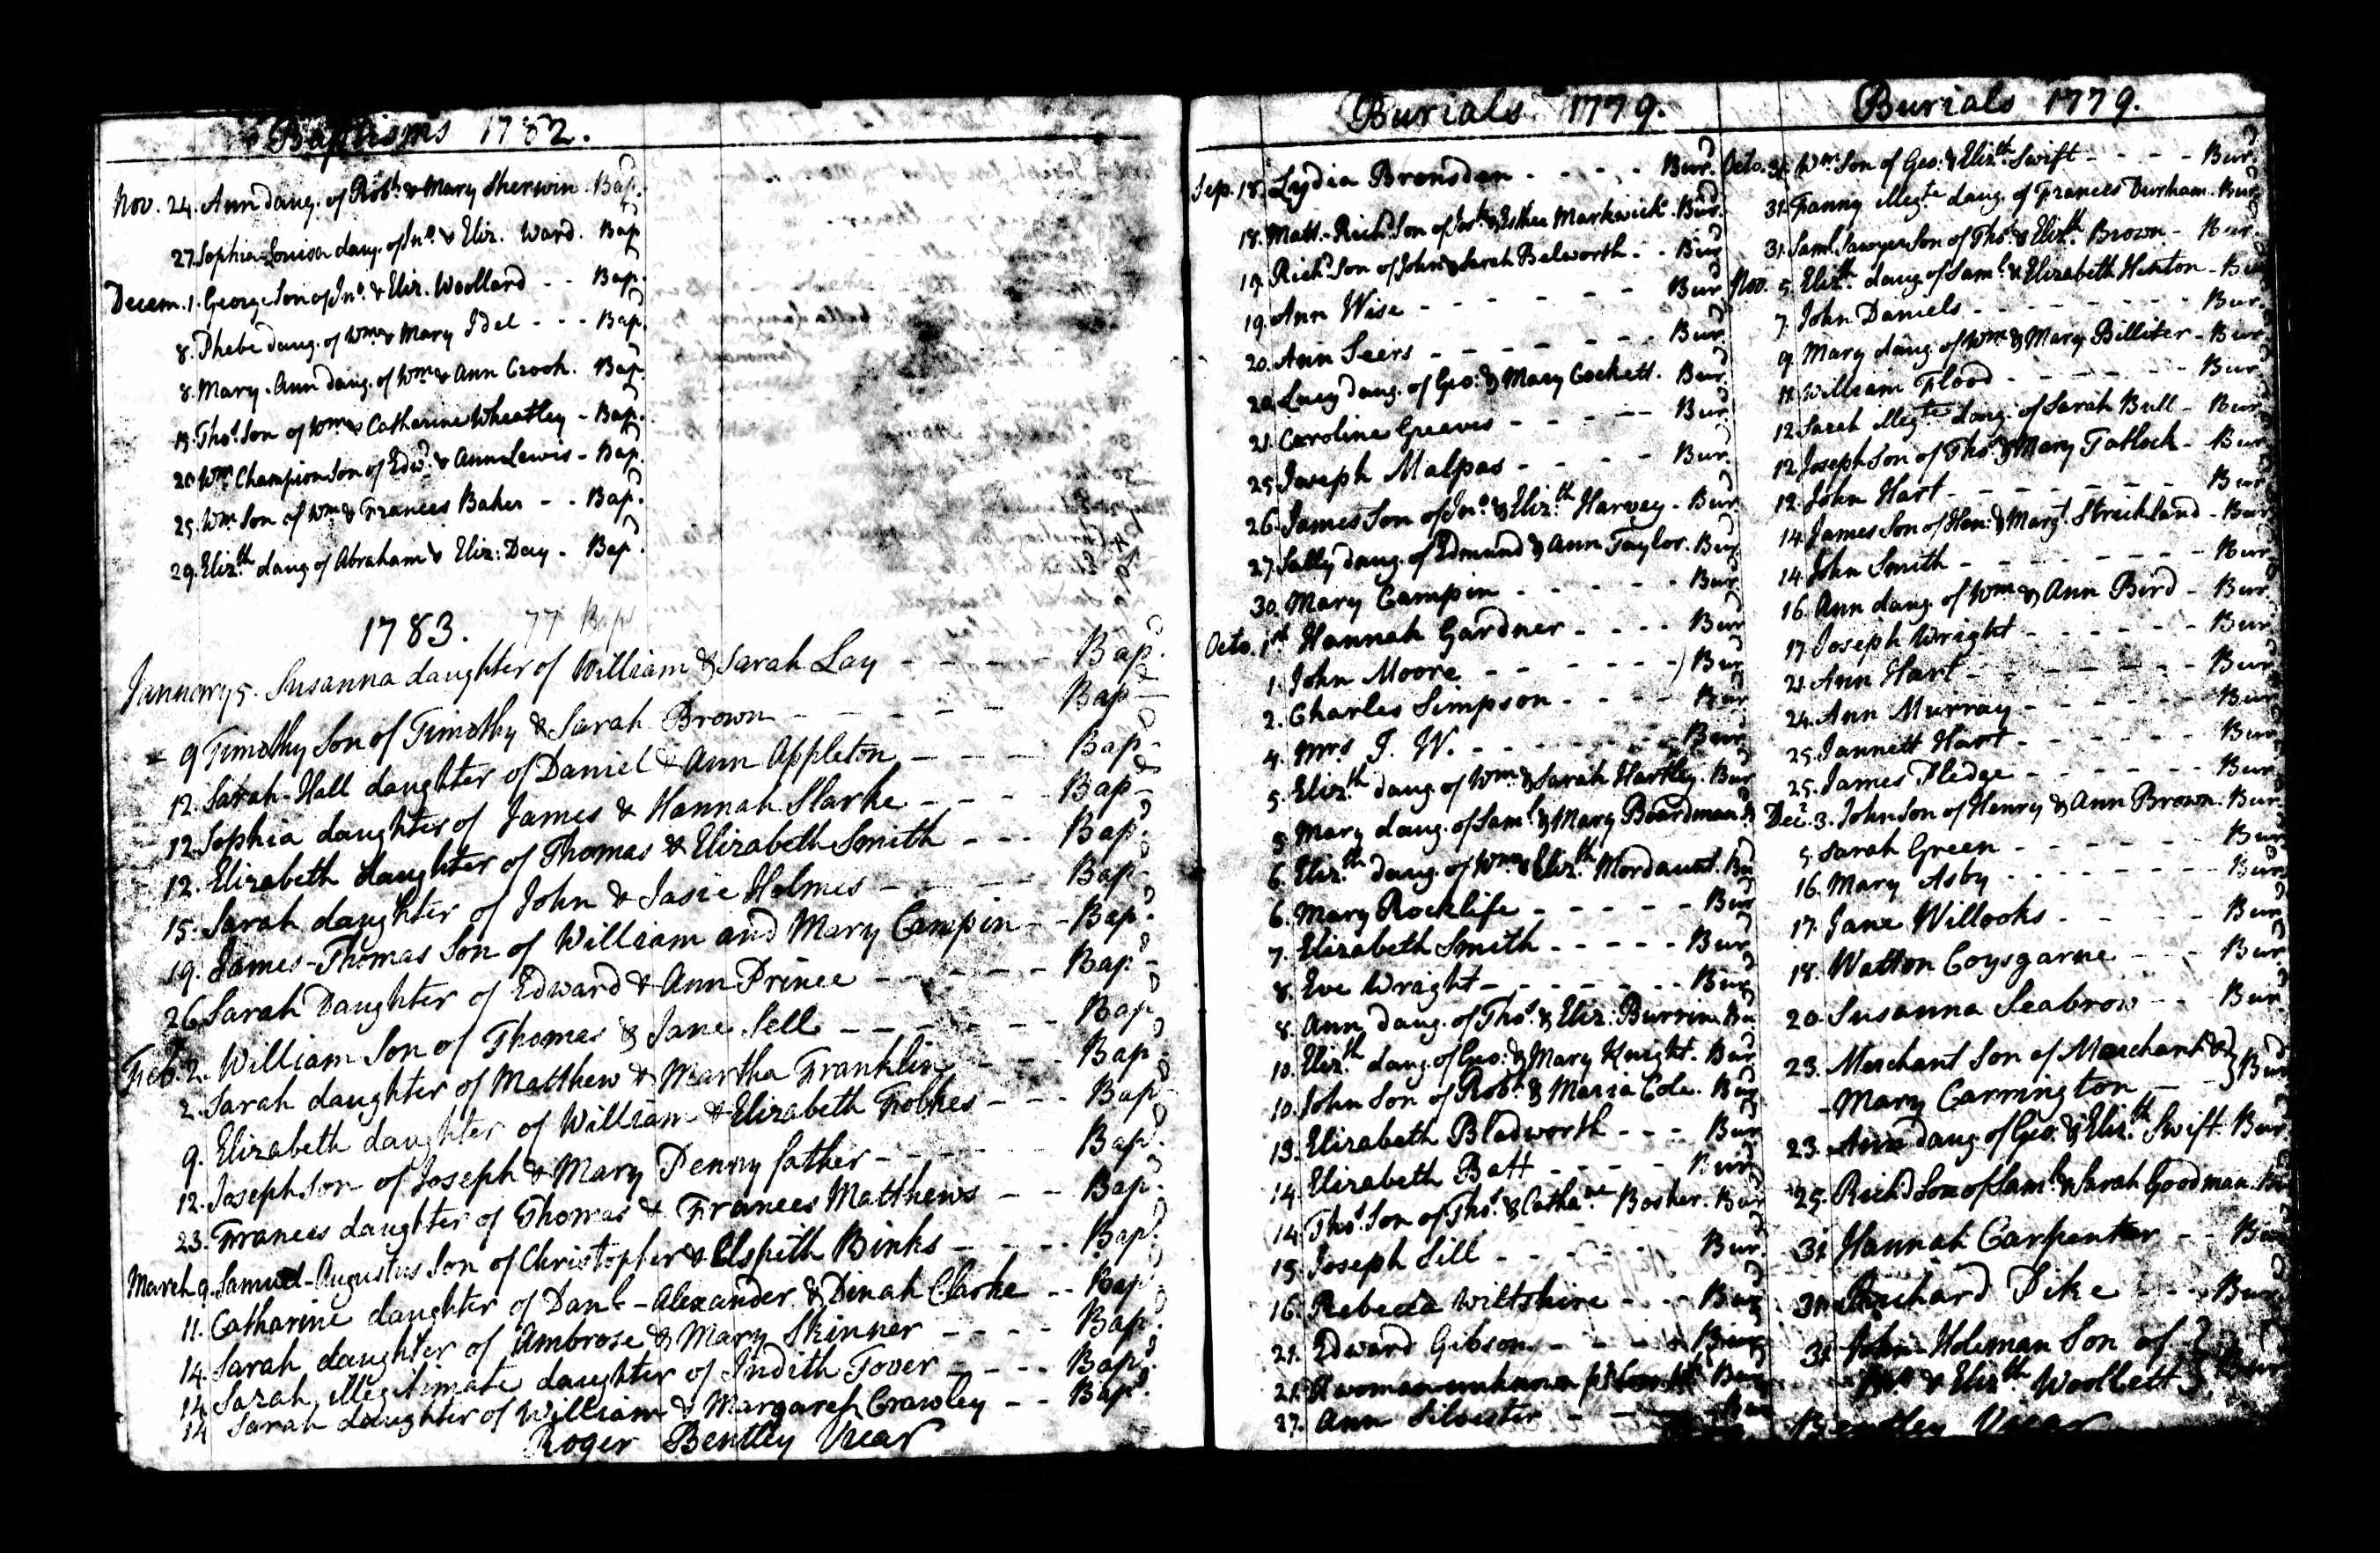 Baptisms 1782.
Nov. 24. Ann daug. of Robt. & Mary Sherwin. Bapd.
27. Sophia-Louisa daug. of Jno. & Eliz. Ward. Bapd
Decem. 1. George Son of Jno. & Eliz. Woollard - - Bapd.
8. Phebe daug. of Wm. & Mary Idel - - - Bapd.
8. Mary-Ann daug. of Wm. & Ann Crook. Bapd.
Thos. Son of Wm. & Catherine Wheatley - Bapd.
20 Wm. Champion Son of Edwd. & Ann Lewis - Bapd.
25. Wm. Son of Wm. & Frances Baker - - Bapd.
29. Elizth. daug. of Abraham & Eliz: Day - Bapd.
1783. 77 Bapd
January 5. Susanna daughter of William & Sarah Lay - - - - - Bapd.
9 Timothy Son of Timothy & Sarah Brown - - - - - Bapd
12. Sarah-Hall daughter of Daniel & Ann Appleton - - - - Bapd
12. Sophia daughter of James & Hannah Slarke - - - - Bapd
12. Elizabeth daughter of Thomas & Elizabeth Smith - - - Bapd.
15. Sarah daughter of John & Jasie Holmes - - - - - Bapd
19. James-Thomas Son of William and Mary Campin - - Bapd.
26. Sarah Daughter of Edward & Ann Prince - - - - - - Bapd
Feb. 2. William Son of Thomas & Jane Sell - - - - - - Bapd
2. Sarah daughter of Matthew & Martha Franklin - - - Bapd
9. Elizabeth daughter of William & Elizabeth Fobkes - - - Bapd
12. Joseph Son of Joseph & Mary Pennyfather - - - - - Bapd.
23. Frances daughter of Thomas & Frances Matthews - - Bapd.
March 9. Samuel-Augustus Son of Christopher & Elspith Binks - - - - Bapd.
11. Catharine daughter of Danl. - Alexander & Dinah Clarke - - Bapd
14. Sarah daughter of Ambrose & Mary Skinner - - - - Bapd.
14. Sarah illegitimate daughter of Judith Tover - - - - Bapd.
14 Sarah daughter of William & Margaret Crawley - - Bapd.
Roger Bentley Vicar
Burials 1779.
Sep. 18. Lydia Bronsden - - - - - Burd.
18. Matt.-Richd. Son of Jos. & Esther Markwick. Burd.
19. Richd. Son of John & Sarah Belworth - - Burd
19. Ann Wise - - - - - - - Burd
20. Ann Seers - - - - - - - Burd
20. Lucy daug. of Geo: & Mary Cockett. Burd
21. Caroline Greaves - - - - - Burd
25. Joseph Malpas - - - - - Burd.
26. James Son of Jno. & Elizth. Harvey - Burd.
27. Sally daug. of Edmund & Ann Taylor. Burd.
30. Mary Campin - - - - - Burd
Octo. 1st Hannah Gardner - - - - Burd
1. John Moore - - - - - - - Burd
2. Charles Simpson - - - - Burd
4. Mrs. J. W. - - - - - - - Burd
5. Elizth. daug. of Wm. & Sarah Hartley. Burd
5 Mary daug. of Saml. & Mary Boardman B
6. Elizth. daug. of Wm. & Elizth. Mordaunt. Bu
6. Mary Rocklife - - - - - Burd
7. Elizabeth Smith - - - - - Burd
8. Eve Wright - - - - - - - Burd
8. Ann daug. of Thos. & Eliz: Burrin Bu
10. Elizth. daug. of Geo: & Mary Knight. Burd
10. John Son of Robt. & Maria Cole. Burd
13. Elizabeth Bladworth - - - Burd
14. Elizabeth Batt - - - - - Burd
14 Thos. Son of Thos. & Cathane. Bosher. Burd
15. Joseph Sill - - - - - Burd.
16. Rebecca Wiltshire - - - Burd
21. Edward Gibson - - - - Burd
21. A woman unknown Burd
27. Ann Silvester - - - Burd
Burials 1779.
Octo. 31. Wm. Son of Geo: & Elizth. Swift - - - - Burd.
31. Fanny illegte. daug. of Frances Durham. Burd.
31. Saml. Sawyer Son of Thos. & Elizth. Brown - Burd.
Nov. 5. Elizth. daug. of Saml. & Elizabeth Henton - Bu
7. John Daniels - - - - - - - Burd.
9. Mary daug. of Wm. & Mary Billiter - Burd.
11. William Flood - - - - - - - Burd.
12. Sarah illegte. daug. of Sarah Bull - Burd.
12. Joseph Son of Thos. & Mary Tatlock - Burd.
12. John Hart - - - - - - - Burd
14. James Son of Hen: & Margt. Strickland - Burd
14. John Smith - - - - - - - Burd.
16. Ann daug. of Wm. & Ann Bird - Burd.
17. Joseph Wright - - - - - - Burd.
21. Ann Hart - - - - - - - Burd.
24. Ann Murray - - - - - - Burd
25. Jannett Hart - - - - - - Burd
25. James Pledge - - - - - - Burd
Decr. 3. John Son of Henry & Ann Brown. Burd.
5. Sarah Green - - - - - - Burd
16. Mary Asby - - - - - - - Burd
17. Jane Willooks - - - - - Burd
18. Watton Coysgarne - - - Burd
20. Susanna Seabrow - - - Burd
23. Merchant Son of Merchant & } Burd
- Mary Carrington - -
23. Ann daug. of Geo. & Elizth. Swift. Burd.
25. Richd. Son of Saml. & Sarah Goodman. Bu
31. Hannah Carpenter - - Burd
31. Richard Pike - - - Burd
31. John-Holeman Son of } Burd
Jno. & Elizth. Woollett
Bentley Vicar